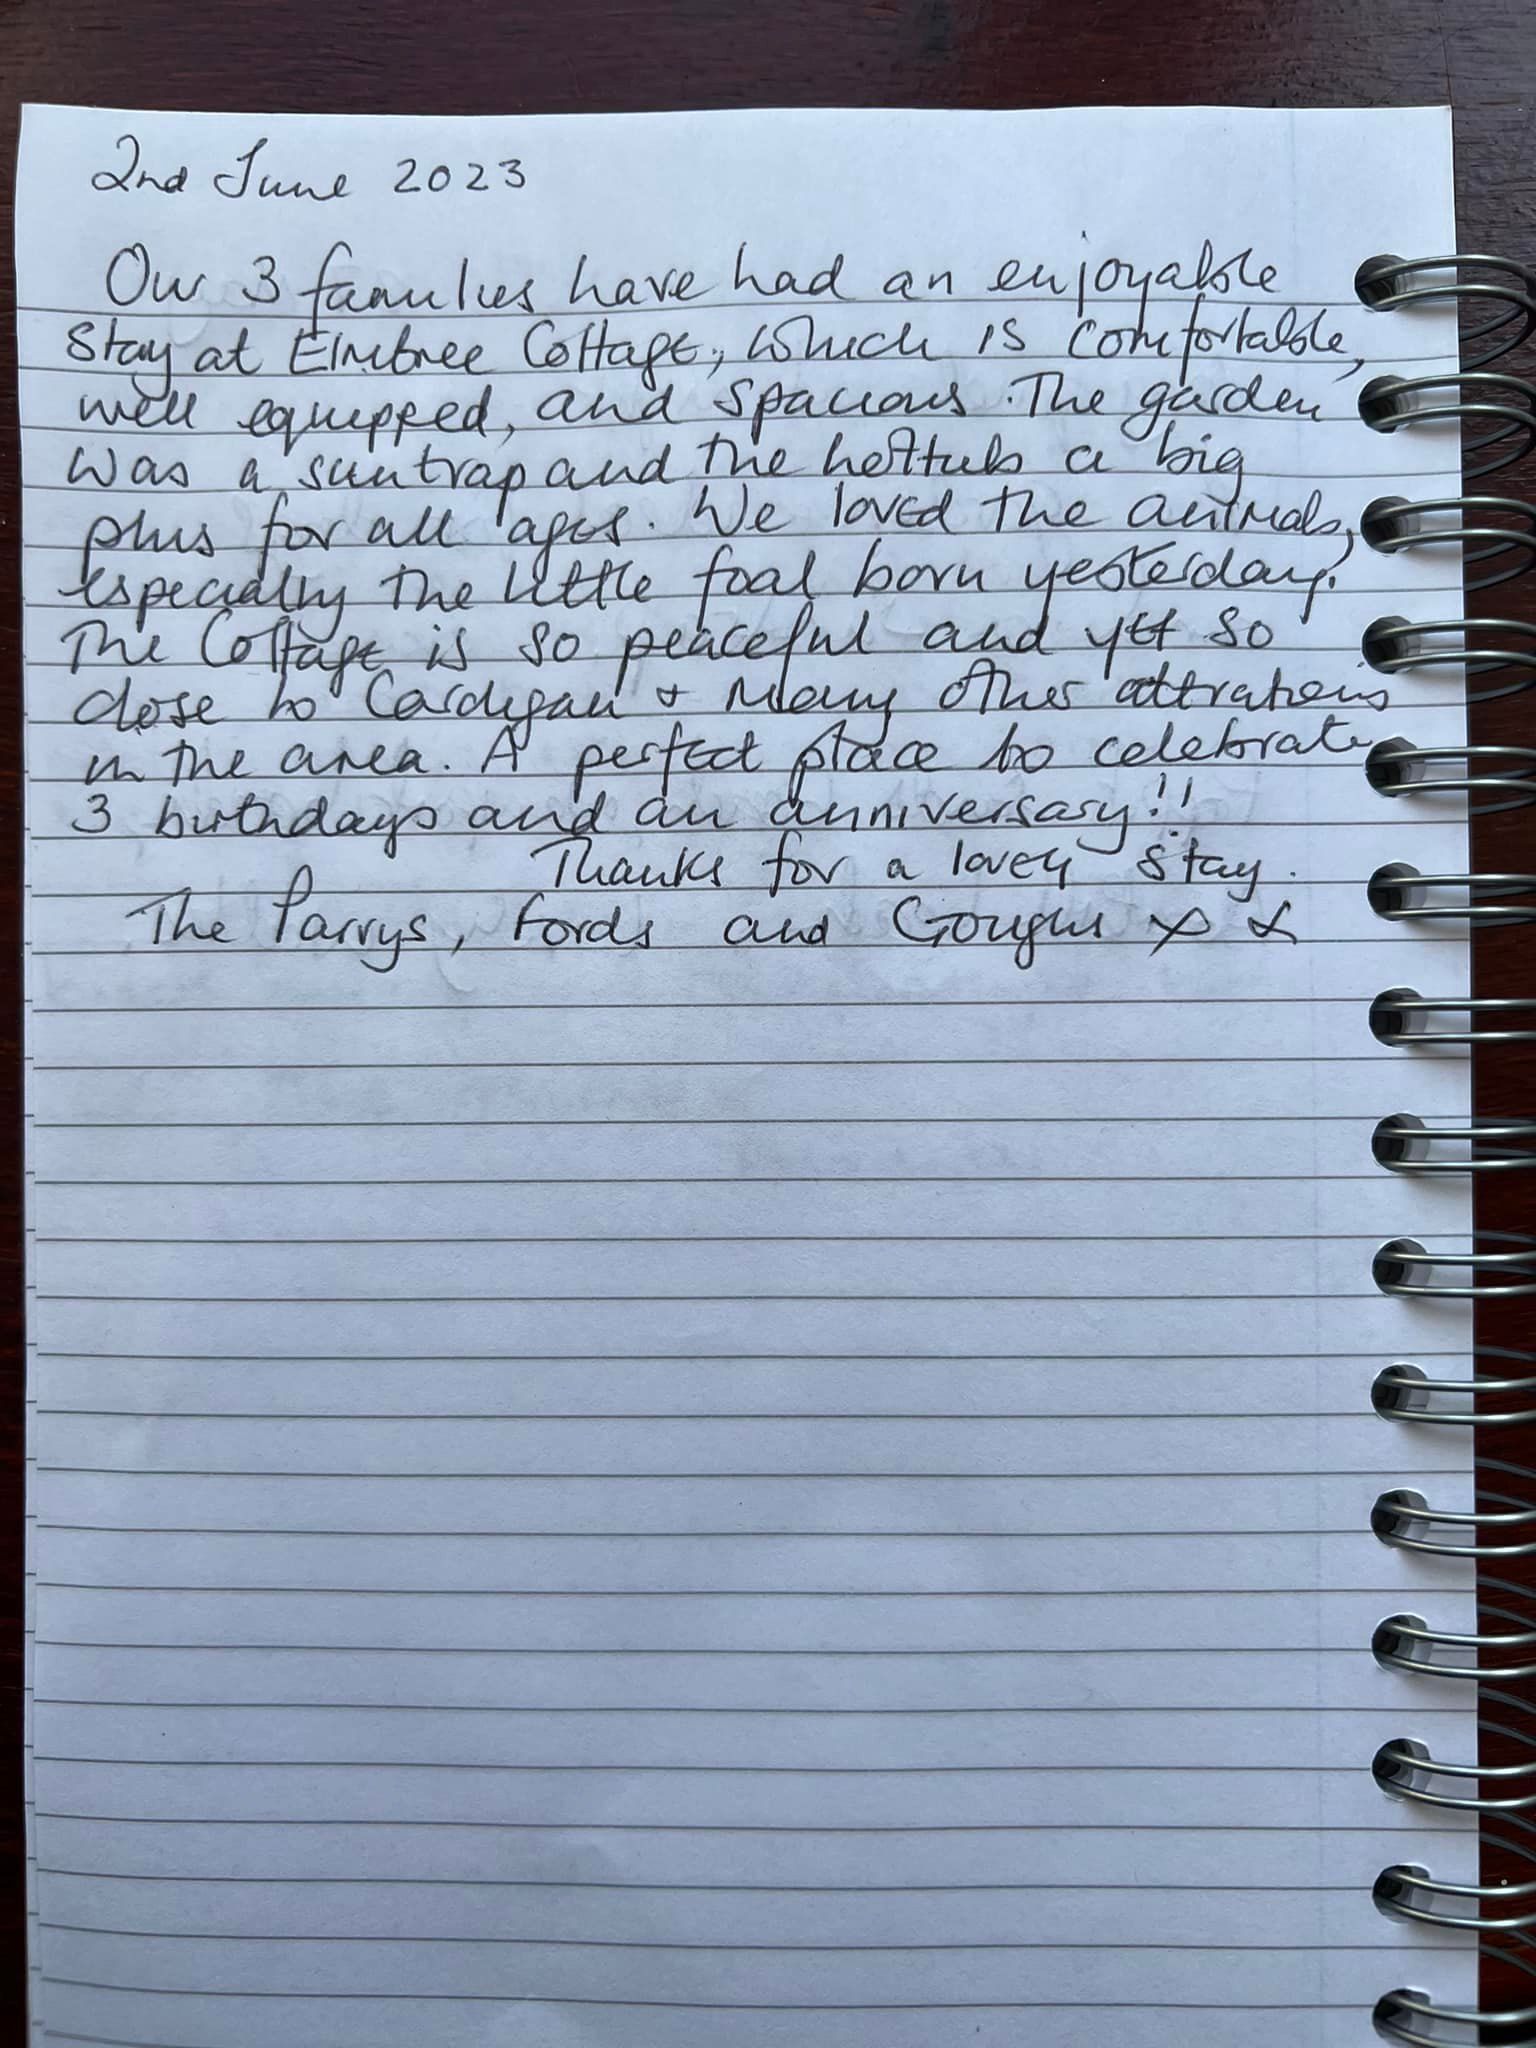 2nd June 2023
Our 3 families have had an enjoyable
stay at Elmtree Cottage, which is comfortable,
well equipped, and spacious. The garden
was a suntrap and the hottub a big
plus for all ages. We loved the animals,
especially the little foal born yesterday.
The Cottage is so peaceful and yet so
close to Cardigan & many other attrations
in the area. A perfect place to celebrate
3 birthdays and an anniversary!!
Thanks for a lovely stay.
The Parrys, Fords and Goughs x x